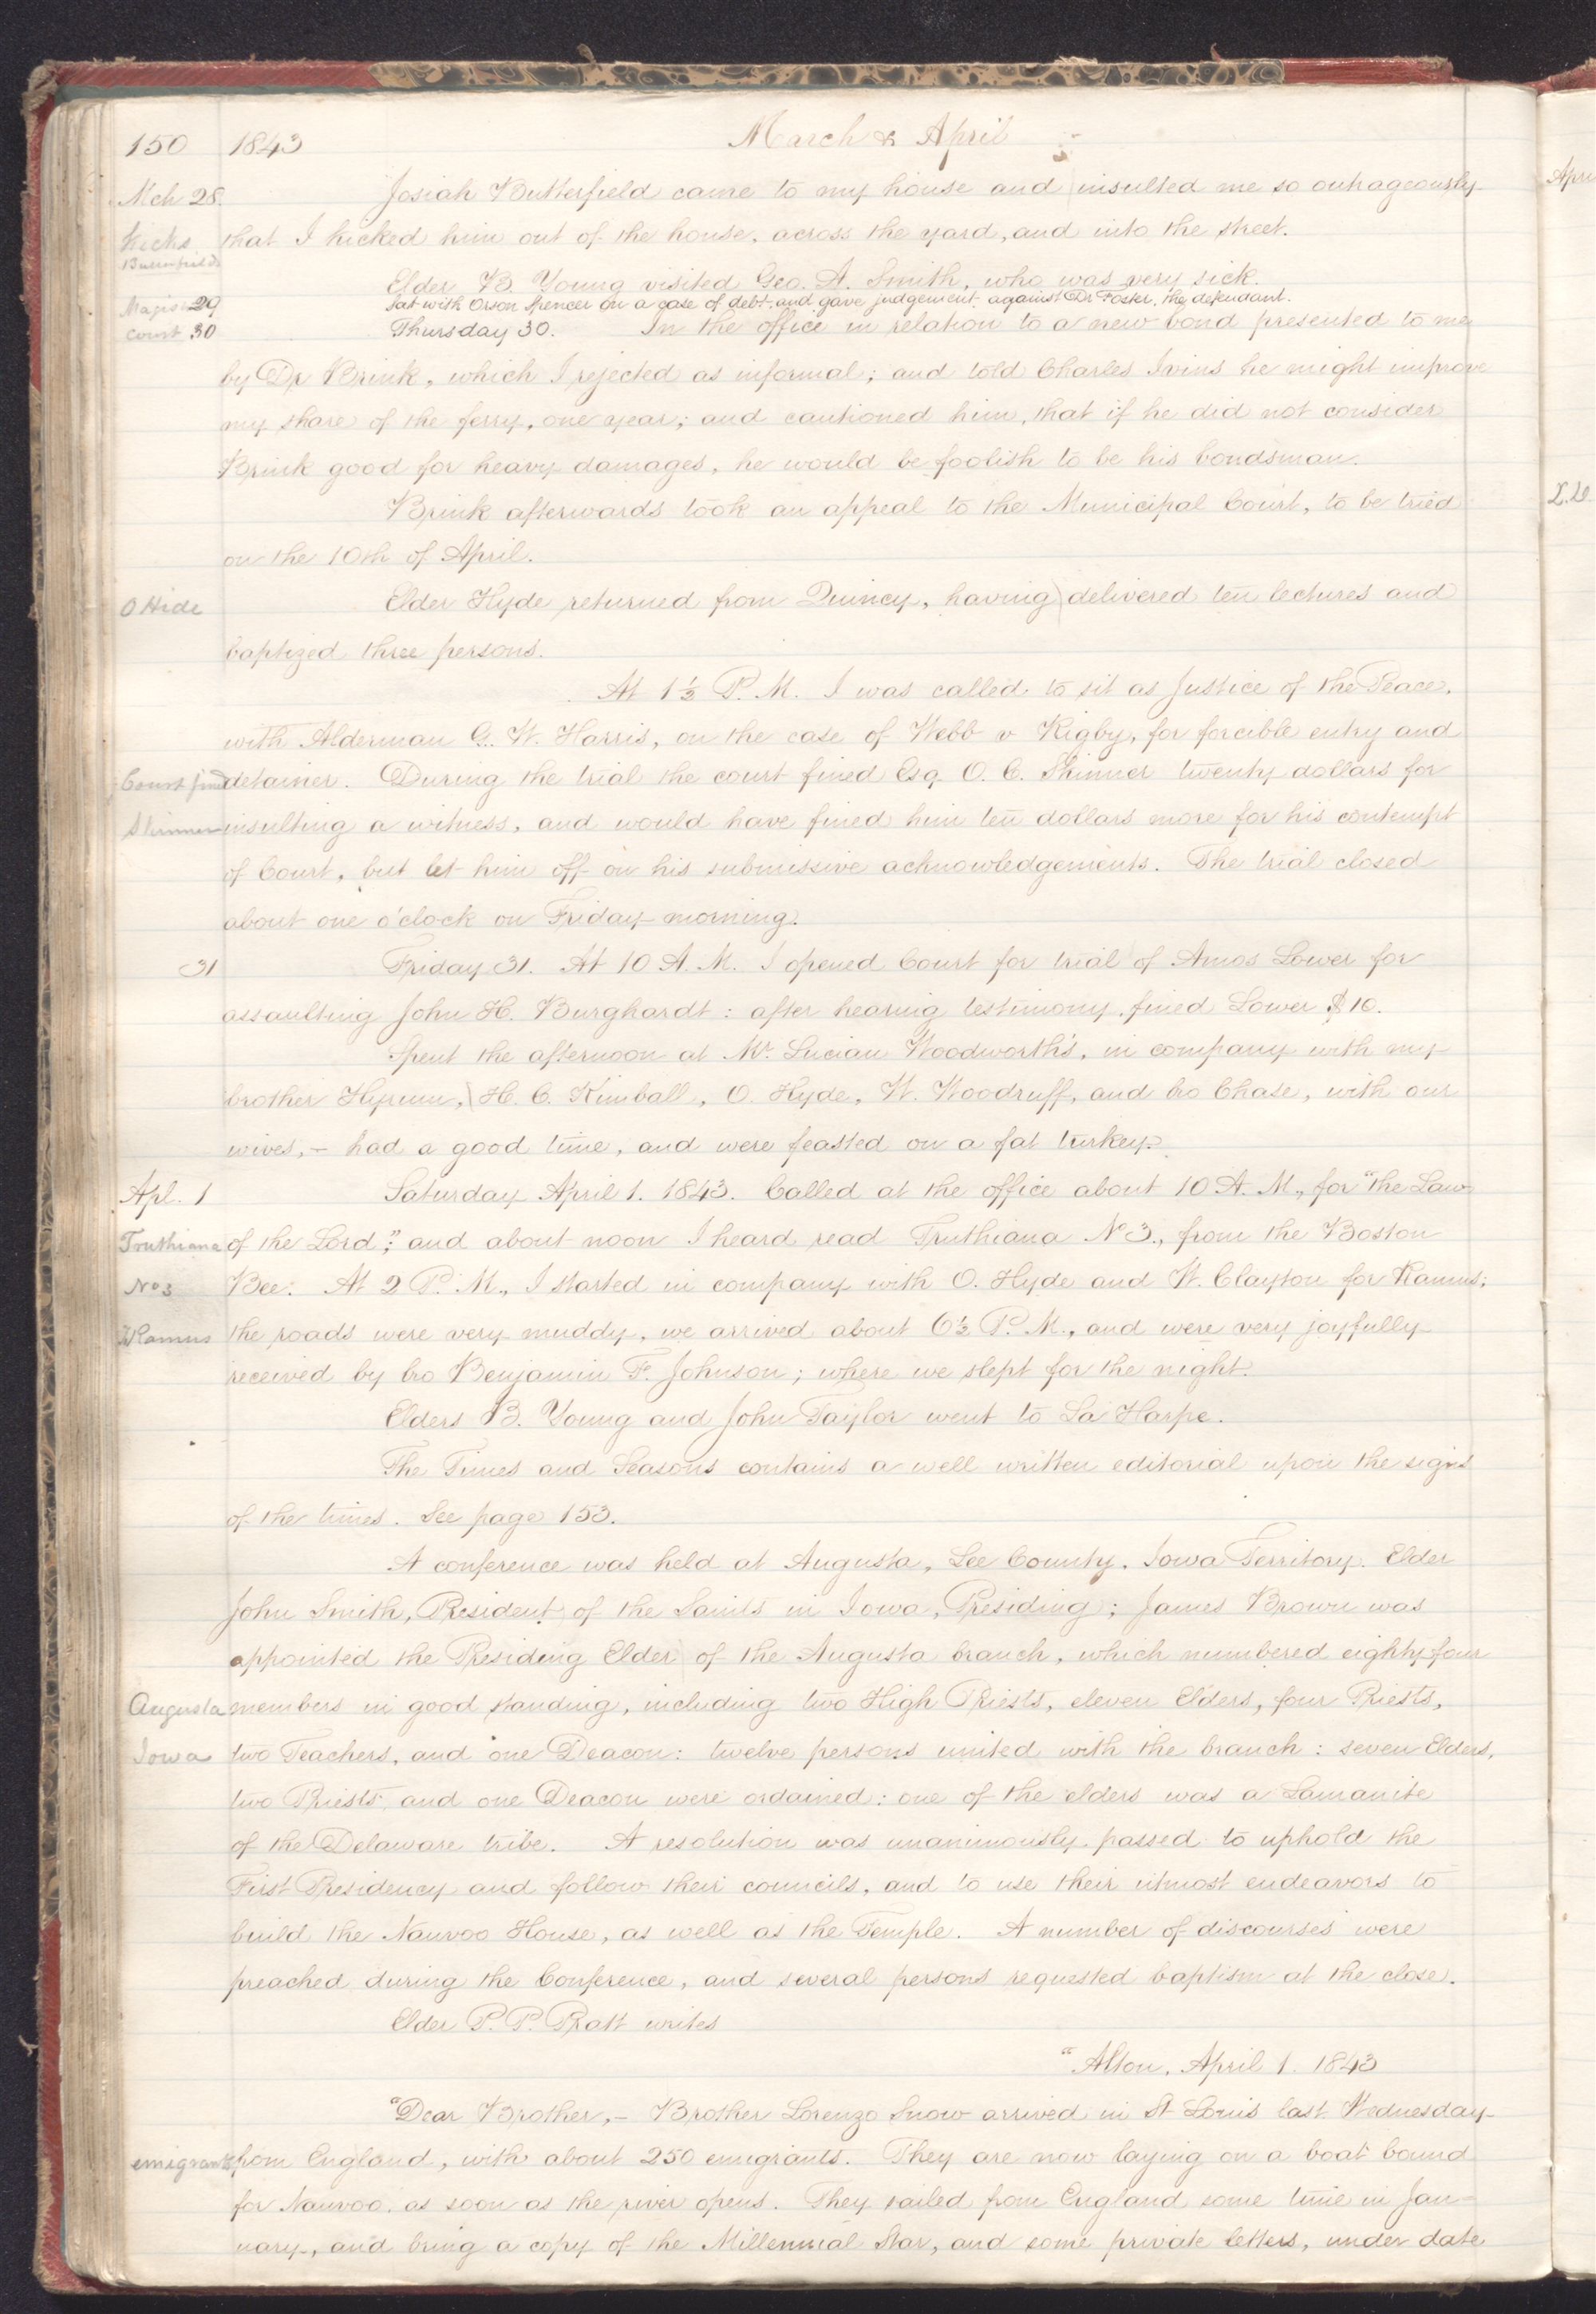 150 1843 March & April
Mch 28. Josiah Butterfield came to my house and insulted me so outrageously
Kicks that I kicked him out of the house, across the yard, and into the street.
Butterfield
Elder B. Young visited Geo. A. Smith, who was very sick.
Magist 29 Sat with Orson Spencer on a case of debt, and gave judgement against Dr Foster, the defendant.
Court 30 Thursday 30. In the office in relation to a new bond presented to me
by Dr Brink, which I rejected as informal; and told Charles Ivins he might improve
my share of the ferry, one year; and cautioned him, that if he did not consider
Brink good for heavy damages, he would be foolish to be his bondsman.
Brink afterwards took an appeal to the Municipal Court, to be tried
on the 10th of April.
O Hide Elder Hyde returned from Quincy, having delivered ten lectures and
baptized three persons.
At 1½ P. M. I was called to sit as Justice of the Peace,
with Alderman G. W. Harris, on the case of Webb v Rigby, for forcible entry and
Court fined detainer. During the trial the court fined Esq. O. C. Skinner twenty dollars for
Skinner insulting a witness, and would have fined him ten dollars more for his contempt
of Court, but let him off on his submissive acknowledgements. The trial closed
about one o'clock on Friday morning.
31 Friday 31. At 10 A. M. I opened Court for trial of Amos Lower for
assaulting John H. Burghardt: after hearing testimony, fined Lower $10.
Spent the afternoon at Mr. Lucian Woodworth's, in company with my
brother Hyrum, H. C. Kimball, O. Hyde, W. Woodruff, and bro Chase, with our
wives,– had a good time, and were feasted on a fat turkey.
Apl. 1 Saturday April 1. 1843. Called at the office about 10 A. M., for "the Law
Truthiana of the Lord;" and about noon I heard read Truthiana No 3., from the Boston
No 3 Bee. At 2 P. M., I started in company with O. Hyde and W. Clayton for Ramus;
Ramus the roads were very muddy, we arrived about 6½ P. M., and were very joyfully
received by bro Benjamin F. Johnson; where we slept for the night.
Elders B. Young and John Taylor went to La Harpe.
The Times and Seasons contains a well written editorial upon the signs
of the times. See page 153.
A conference was held at Augusta, Lee County, Iowa Territory. Elder
John Smith, President of the Saints in Iowa, Presiding; James Brown was
appointed the Presiding Elder of the Augusta branch, which numbered eighty four
Augusta members in good standing, including two High Priests, eleven Elders, four Priests,
Iowa two Teachers, and one Deacon: twelve persons united with the branch: seven Elders,
two Priests and one Deacon were ordained: one of the elders was a Lamanite
of the Delaware tribe. A resolution was unanimously passed to uphold the
First Presidency and follow their councils, and to use their utmost endeavors to
build the Nauvoo House, as well as the Temple. A number of discourses were
preached during the Conference, and several persons requested baptism at the close.
Elder P. P. Pratt writes
"Alton, April 1. 1843
"Dear Brother,– Brother Lorenzo Snow arrived in St Louis last Wednesday
emigrants from England, with about 250 emigrants. They are now laying on a boat bound
for Nauvoo, as soon as the river opens. They sailed from England some time in Jan-
uary, and bring a copy of the Millennial Star, and some private letters, under date